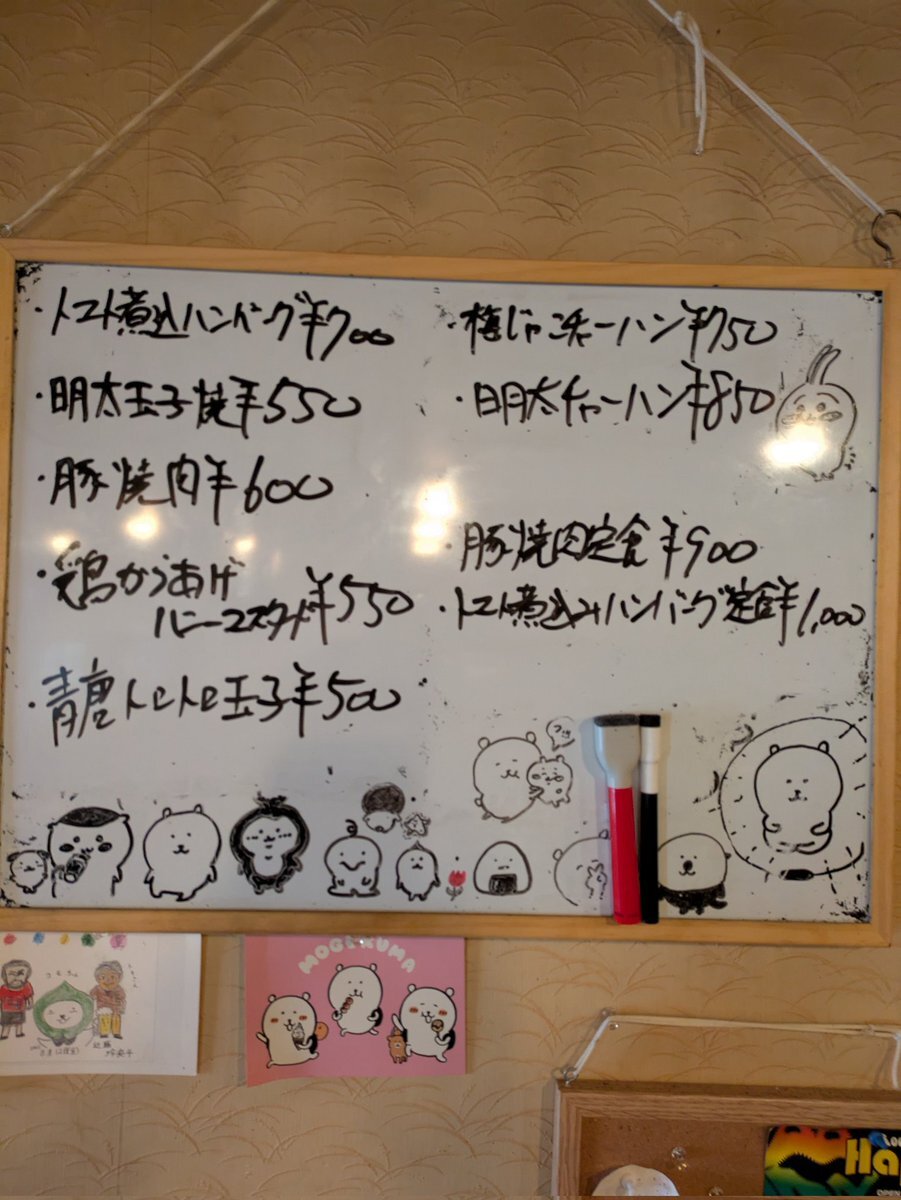 ・トマト煮込ハンバーグ¥700
・明太玉子焼¥550
・豚焼肉¥600
・鶏からあげ
ハニーマスタード¥550
・青唐トロトロ玉子¥500
・梅じゃこチャーハン¥750
・明太チャーハン¥850
・豚焼肉定食¥900
・トマト煮込みハンバーグ定食¥1,000
MOGUKUMA
近藤
Ha
OPEN